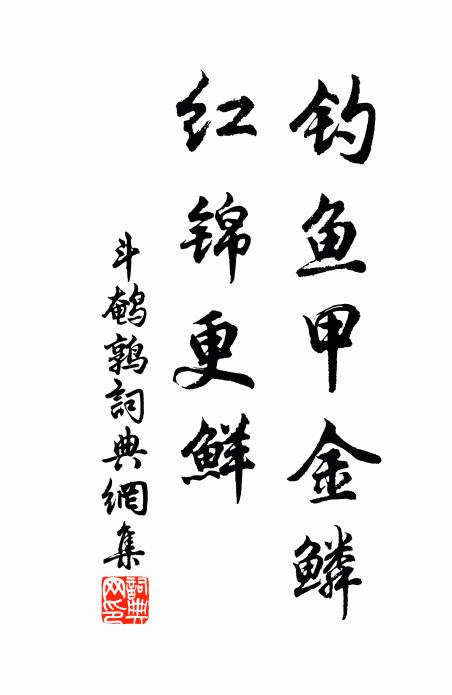 钓鱼甲金鳞
红锦更鲜
斗鹌鹑詞典網集
詞典网印